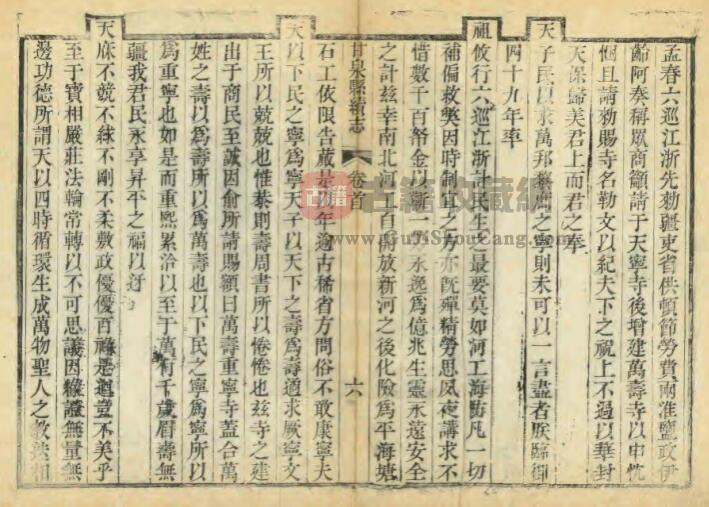 孟春六巡江浙先勅疆吏東省供頓節勞費兩淮鹽政伊
齡阿奏稱眾商籲請于天寧寺後增建萬壽寺以申忱
悃且請勅賜寺名勒文以紀夫下之祝上不過以華封
天保歸美君上而君之奉
天子民以求萬邦黎庶之寧則未可以一言盡者朕臨御
四十九年率
祖攸行六巡江浙計民生之最要莫如河工海防凡一切
補偏救弊因時制宜之方亦既殫精勞思夙夜講求不
惜數千百帑金以斯一勞永逸為億兆生靈永遠安全
之計茲幸南北河工自開放新河之後化險為平海塘
甘泉縣續志 卷首 六
石工依限告蕆是年逾古稀省方問俗不敢康寧夫
天以下民之寧為寧天子以天下之壽為壽遹求厥寧文
王所以兢兢也惟恭則壽周書所以惓惓也茲寺之建
出于商民至誠因俞所請賜額曰萬壽重寧寺蓋合萬
姓之壽以為壽所以為萬壽也以下民之寧為寧所以
為重寧也如是而重熙累洽以至于萬有千歲眉壽無
疆我君民永享昇平之福以迓
天庥不競不絿不剛不柔敷政優優百祿是遒豈不美乎
至于寶相嚴莊法輪常轉以不可思議因緣證無量無
邊功德所謂天以四時循環生成萬物聖人之教迭相
古籍收藏網
www.GuJiShouCang.com